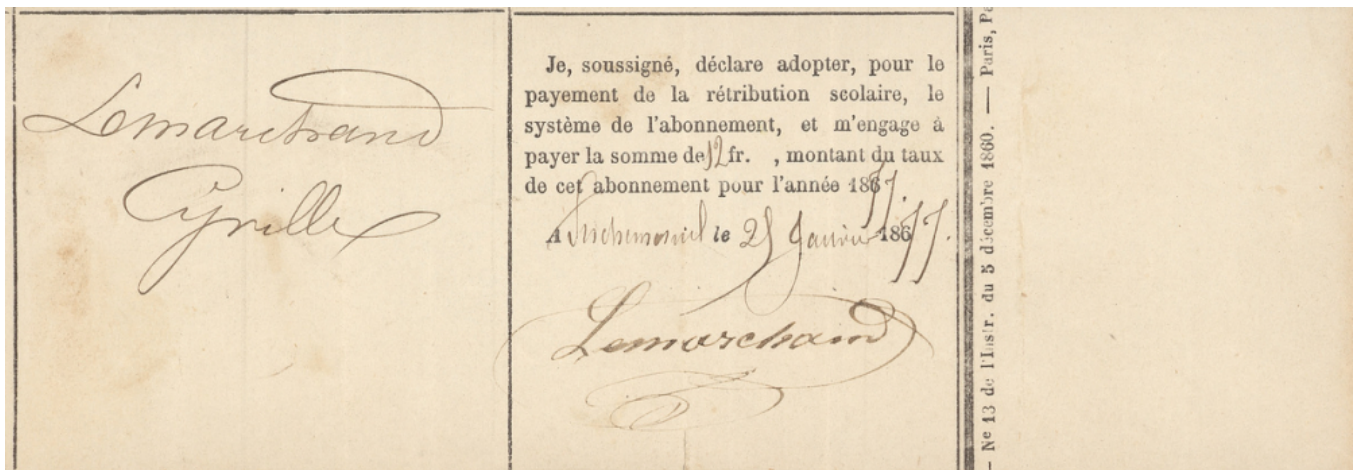 Lemarchand
Cyrille
Je, soussigné, déclare adopter, pour le
payement de la rétribution scolaire, le
système de l'abonnement, et m'engage à
payer la somme de 12 fr. , montant du taux
de cet abonnement pour l'année 1877.
A le 25 Janvier 1877.
Lemarchand
— Ne 13 de l'Instr. du 5 décembre 1860. — Paris,